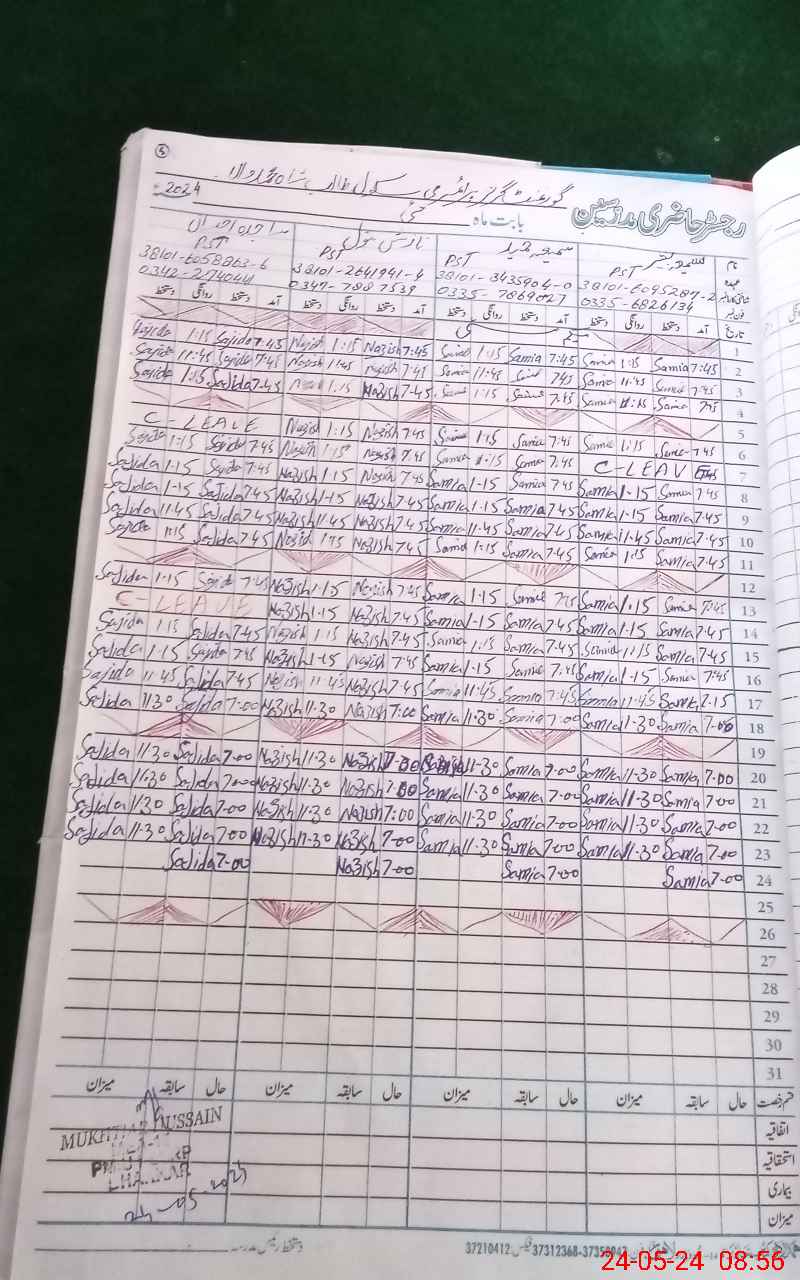 5
گورنمنٹ گرلز پرائمری سکول طالب شاہ
رجسٹر حاضری مدرسین بابت ماہ مئی 2024
PST PST PST PST
38101-6058863-6 38101-2641941-4 38101-3435904-0 38101-6095287-2
0342-2774041 0347-7887539 0335-7869027 0335-6826134
تاریخ آمد دستخط روانگی دستخط آمد دستخط روانگی دستخط آمد دستخط روانگی دستخط آمد دستخط روانگی دستخط
1
Sajida 1:15 Sajida 7:45 Nazish 1:15 Nazish 7:45 Samia 1:15 Samia 7:45 Samia 1:15 Samia 7:45 2
Sajida 11:45 Sajida 7:45 Nazish 11:45 Nazish 7:45 Samia 11:45 Samia 7:45 Samia 11:45 Samia 7:45 3
Sajida 1:15 Sajida 7:45 Nazish 1:15 Nazish 7:45 Samia 1:15 Samia 7:45 Samia Samia 7:45 4
5
C-LEAVE Nazish 1:15 Nazish 7:45 Samia 1:15 Samia 7:45 Samia 1:15 Samia 7:45 6
Sajida 1:15 Sajida 7:45 Nazish 1:15 Nazish 7:45 Samia 1:15 Samia 7:45 C-LEAVE 7
Sajida 1-15 Sajida 7:45 Nazish 1-15 Nazish 7:45 Samia 1-15 Samia 7:45 Samia 1-15 Samia 7:45 8
Sajida 1-15 Sajida 7-45 Nazish 1-15 Nazish 7-45 Samia 1-15 Samia 7-45 Samia 1-15 Samia 7-45 9
Sajida 11-45 Sajida 7-45 Nazish 11-45 Nazish 7-45 Samia 11-45 Samia 7-45 Samia 11-45 Samia 7-45 10
Sajida 1:15 Sajida 7-45 Nazish 1:15 Nazish 7-45 Samia 1-15 Samia 7-45 Samia 1:15 Samia 7-45 11
12
Sajida 1-15 Sajida 7:45 Nazish 1-15 Nazish 7:45 Samia 1-15 Samia 7:45 Samia 1-15 Samia 7:45 13
C-LEAVE Nazish 1-15 Nazish 7-45 Samia 1-15 Samia 7-45 Samia 1-15 Samia 7-45 14
Sajida 1:15 Sajida 7-45 Nazish 1:15 Nazish 7-45 Samia 1:15 Samia 7-45 Samia 11:15 Samia 7-45 15
Sajida 1-15 Sajida 7:45 Nazish 1-15 Nazish 7:45 Samia 1-15 Samia 7:45 Samia 1-15 Samia 7:45 16
Sajida 11:45 Sajida 7-45 Nazish 11:45 Nazish 7-45 Samia 11:45 Samia 7:45 Samia 11:45 Samia 17
Sajida 11:30 Sajida 7:00 Nazish 11:30 Nazish 7:00 Samia 11:30 Samia 7:00 Samia 11:30 Samia 7-00 18
19
Sajida 11-30 Sajida 7-00 Nazish 11-30 Nazish 7-00 Samia 11-30 Samia 7-00 Samia 11-30 Samia 7-00 20
Sajida 11-30 Sajida 7-00 Nazish 11-30 Nazish 7-00 Samia 11-30 Samia 7-00 Samia 11-30 Samia 7-00 21
Sajida 11-30 Sajida 7-00 Nazish 11-30 Nazish 7:00 Samia 11-30 Samia 7-00 Samia 11-30 Samia 7-00 22
Sajida 11-30 Sajida 7-00 Nazish 11-30 Nazish 7-00 Samia 11-30 Samia 7-00 Samia 11-30 Samia 7-00 23
Sajida 7-00 Nazish 7-00 Samia 7-00 Samia 7-00 24
25
26
27
28
29
30
31
قسم رخصت حال سابقہ میزان حال سابقہ میزان حال سابقہ میزان حال سابقہ میزان
اتفاقیہ
استحقاقیہ
بیماری
میزان
MUKHTAR HUSSAIN
BHAKKAR
24-05-2024
دستخط رئیس مدرسہ
37210412 فیکس 37312368-37358047
24-05-24 08:56